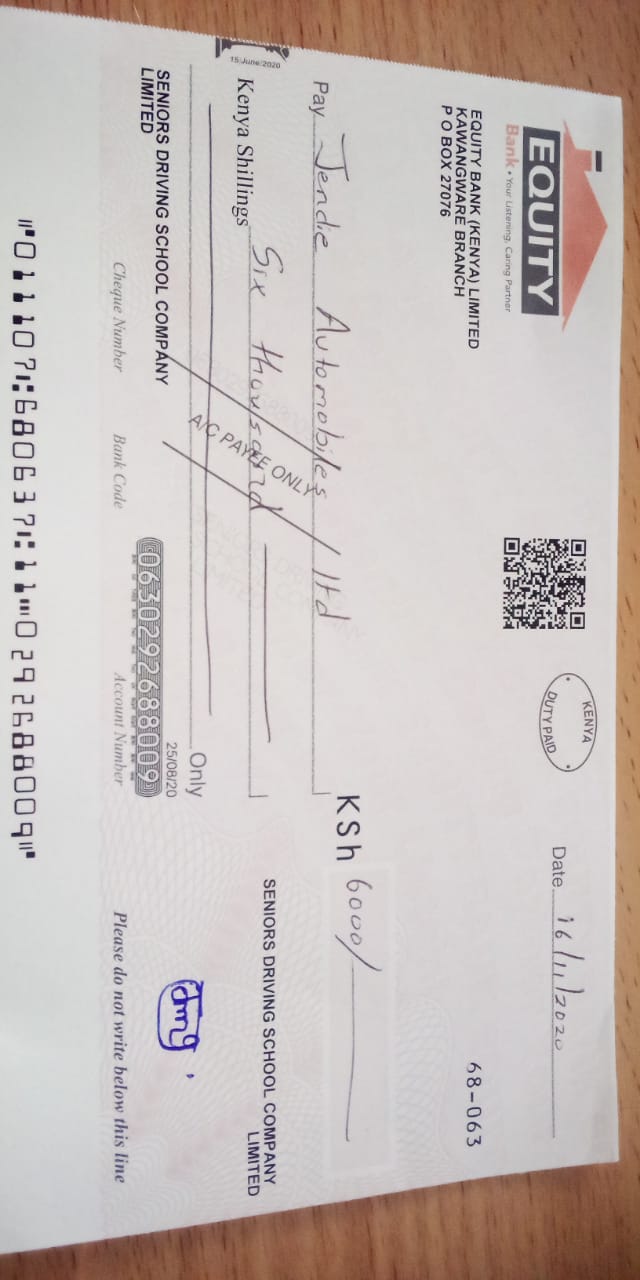 EQUITY
Bank • Your Listening, Caring Partner
EQUITY BANK (KENYA) LIMITED
KAWANGWARE BRANCH
P O BOX 27076
KENYA
DUTY PAID
Date 16/11/2020
68-063
Pay Jendie Automobiles ltd
KSh 6000/
15/June/2020
Kenya Shillings Six thousand
A/C PAYEE ONLY
Only
25/08/20
SENIORS DRIVING SCHOOL COMPANY
LIMITED
SENIORS DRIVING SCHOOL COMPANY
LIMITED
0630292688009
Cheque Number Bank Code Account Number
Please do not write below this line
⑈011107⑆680637⑆11⑈0292688009⑈